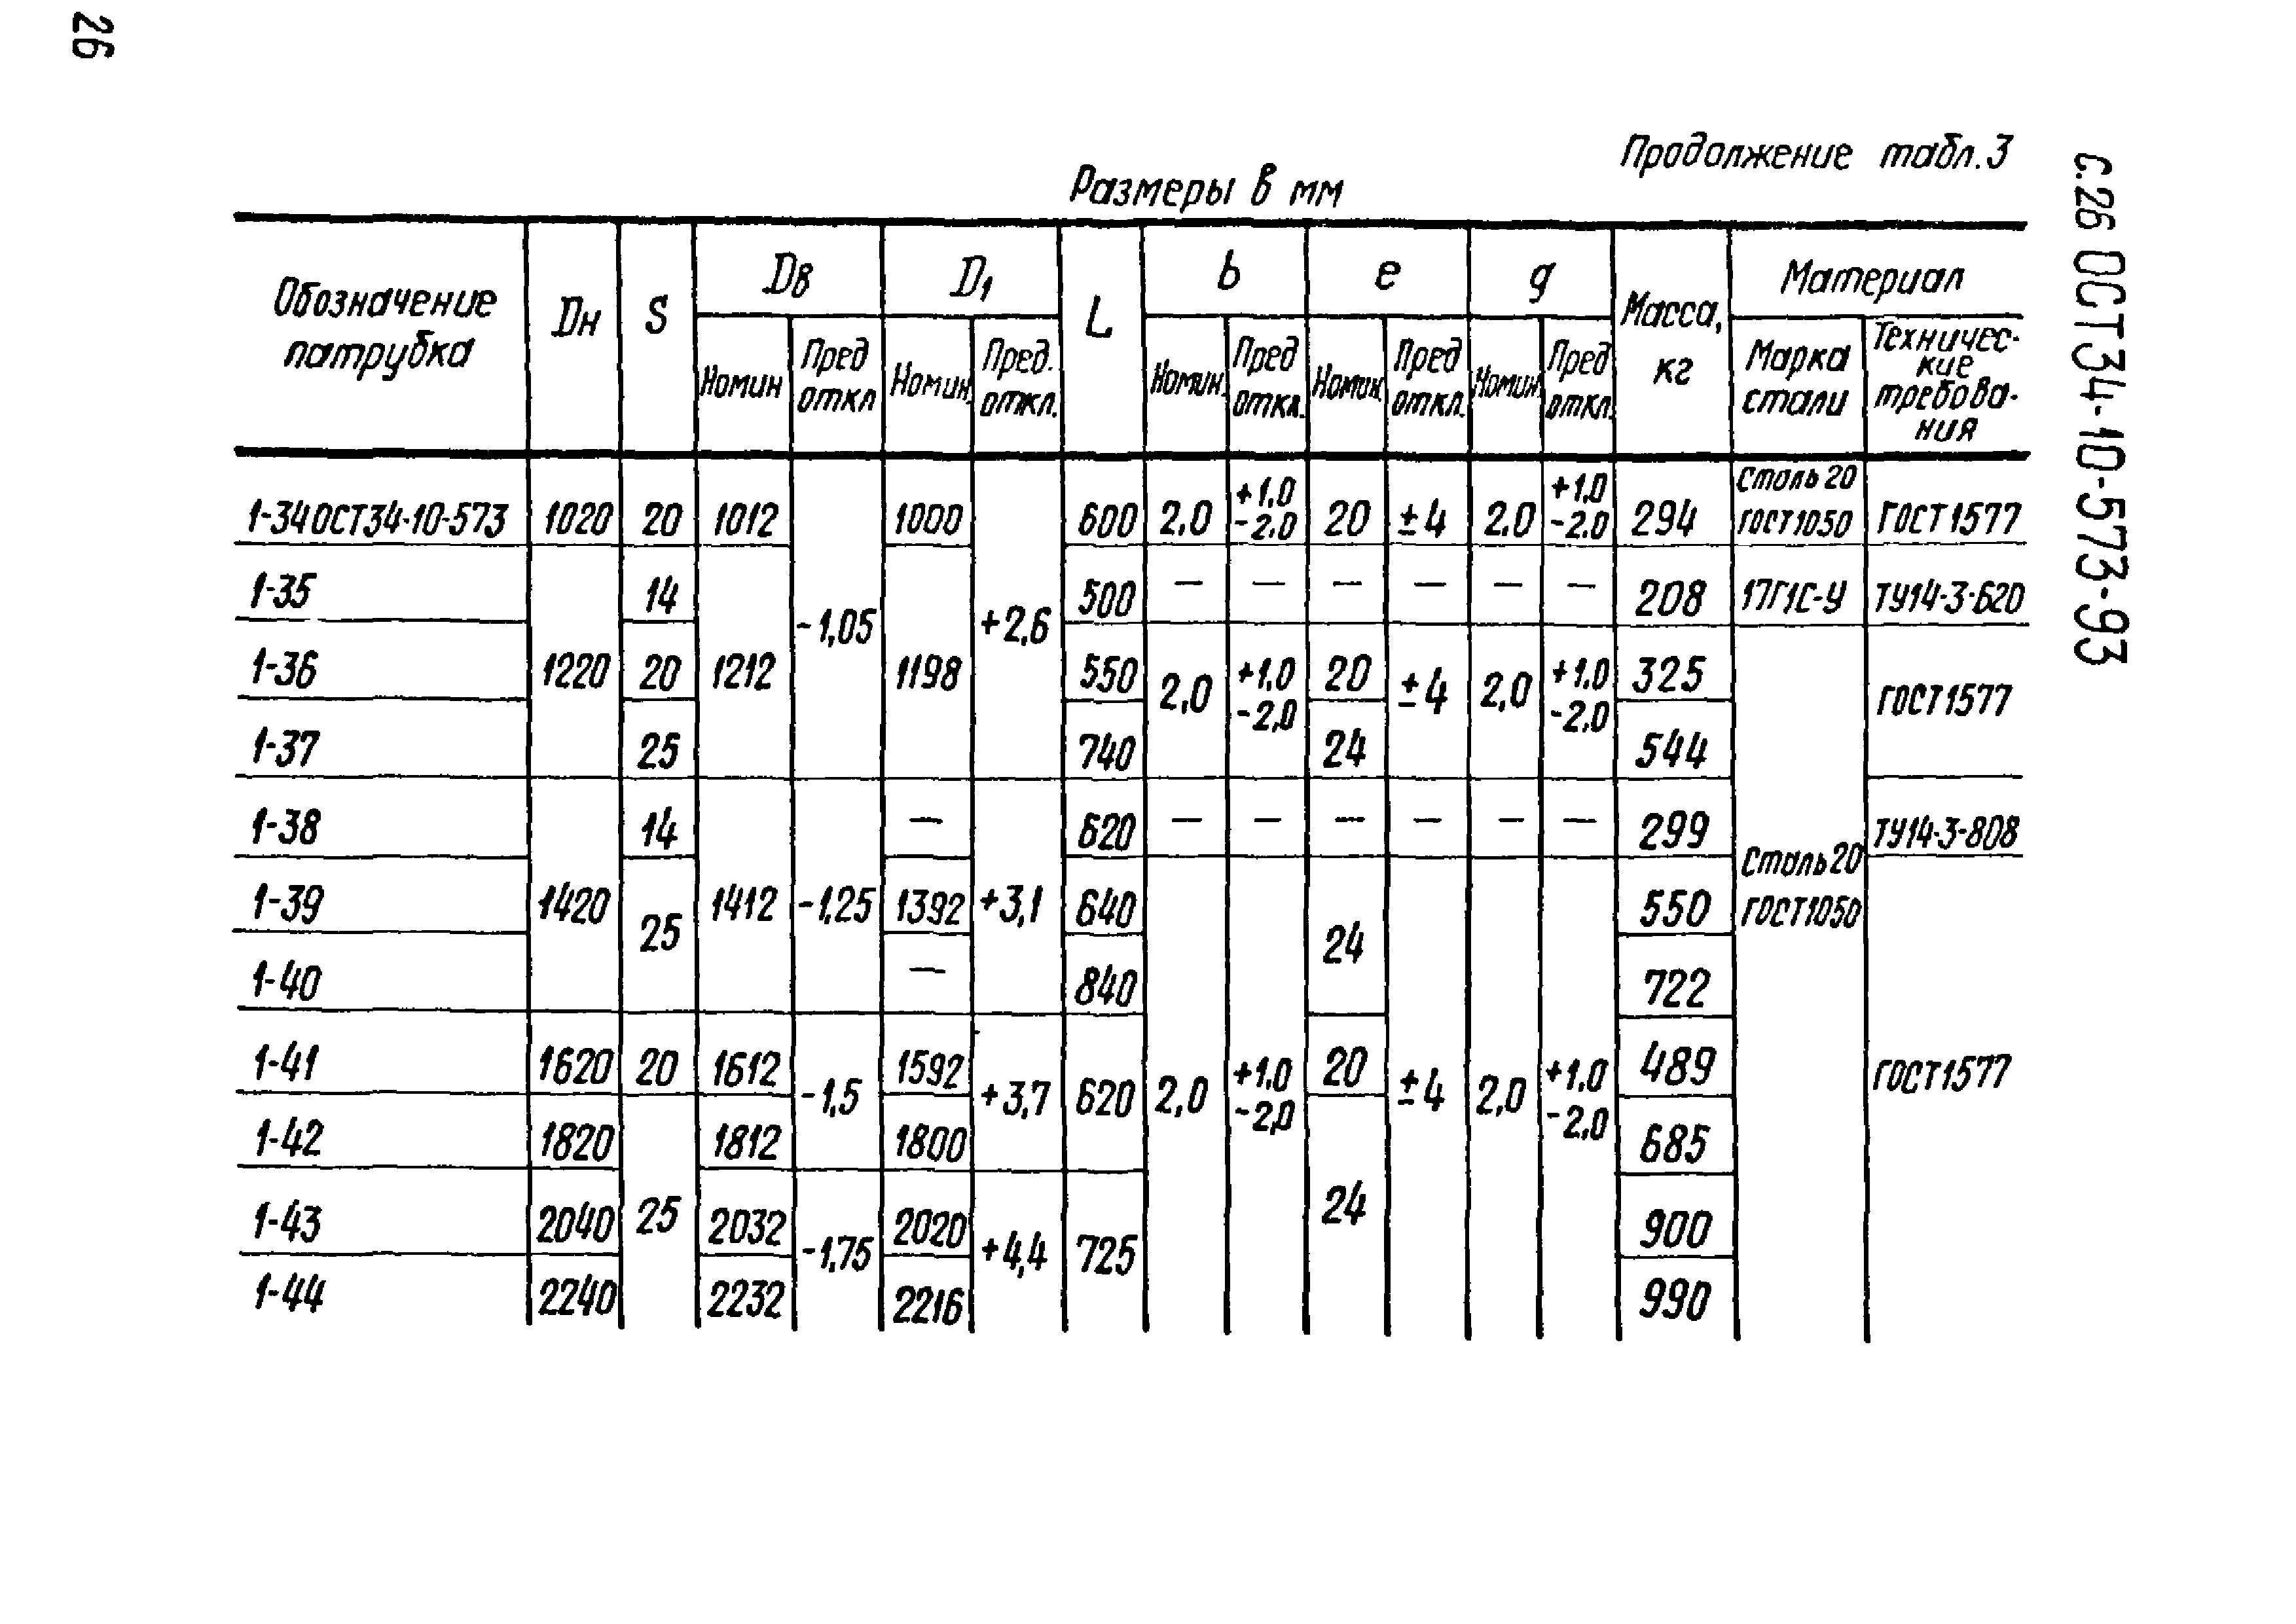 26
с.26 ОСТ 34-10-573-93
Продолжение табл.3
Размеры в мм
Обозначение патрубка Dн S Dв D1 L b e g Масса, кг Материал
Номин Пред откл Номин. Пред. откл. Номин. Пред откл. Номин. Пред откл. Номин Пред откл. Марка стали Техничес-кие требова-ния
1-34 ОСТ34-10-573 1020 20 1012 1000 600 2,0 +1.0 -2.0 20 ±4 2.0 +1.0 -2.0 294 Сталь 20 ГОСТ1050 ГОСТ1577
1-35 14 -1,05 +2,6 500 — — — — — — 208 17Г1С-У ТУ14-3-620
1-36 1220 20 1212 1198 550 2,0 +1.0 -2,0 20 ±4 2,0 +1.0 -2,0 325 ГОСТ1577
1-37 25 740 24 544
1-38 14 — 620 — — — — — — 299 ТУ14-3-808
1-39 1420 25 1412 -1,25 1392 +3,1 640 24 550 Сталь 20 ГОСТ1050
1-40 — 840 722
1-41 1620 20 1612 -1,5 1592 +3,7 620 2,0 +1.0 -2,0 20 ±4 2,0 +1.0 -2.0 489 ГОСТ1577
1-42 1820 1812 1800 685
1-43 2040 25 2032 -1,75 2020 +4,4 725 24 900
1-44 2240 2232 2216 990